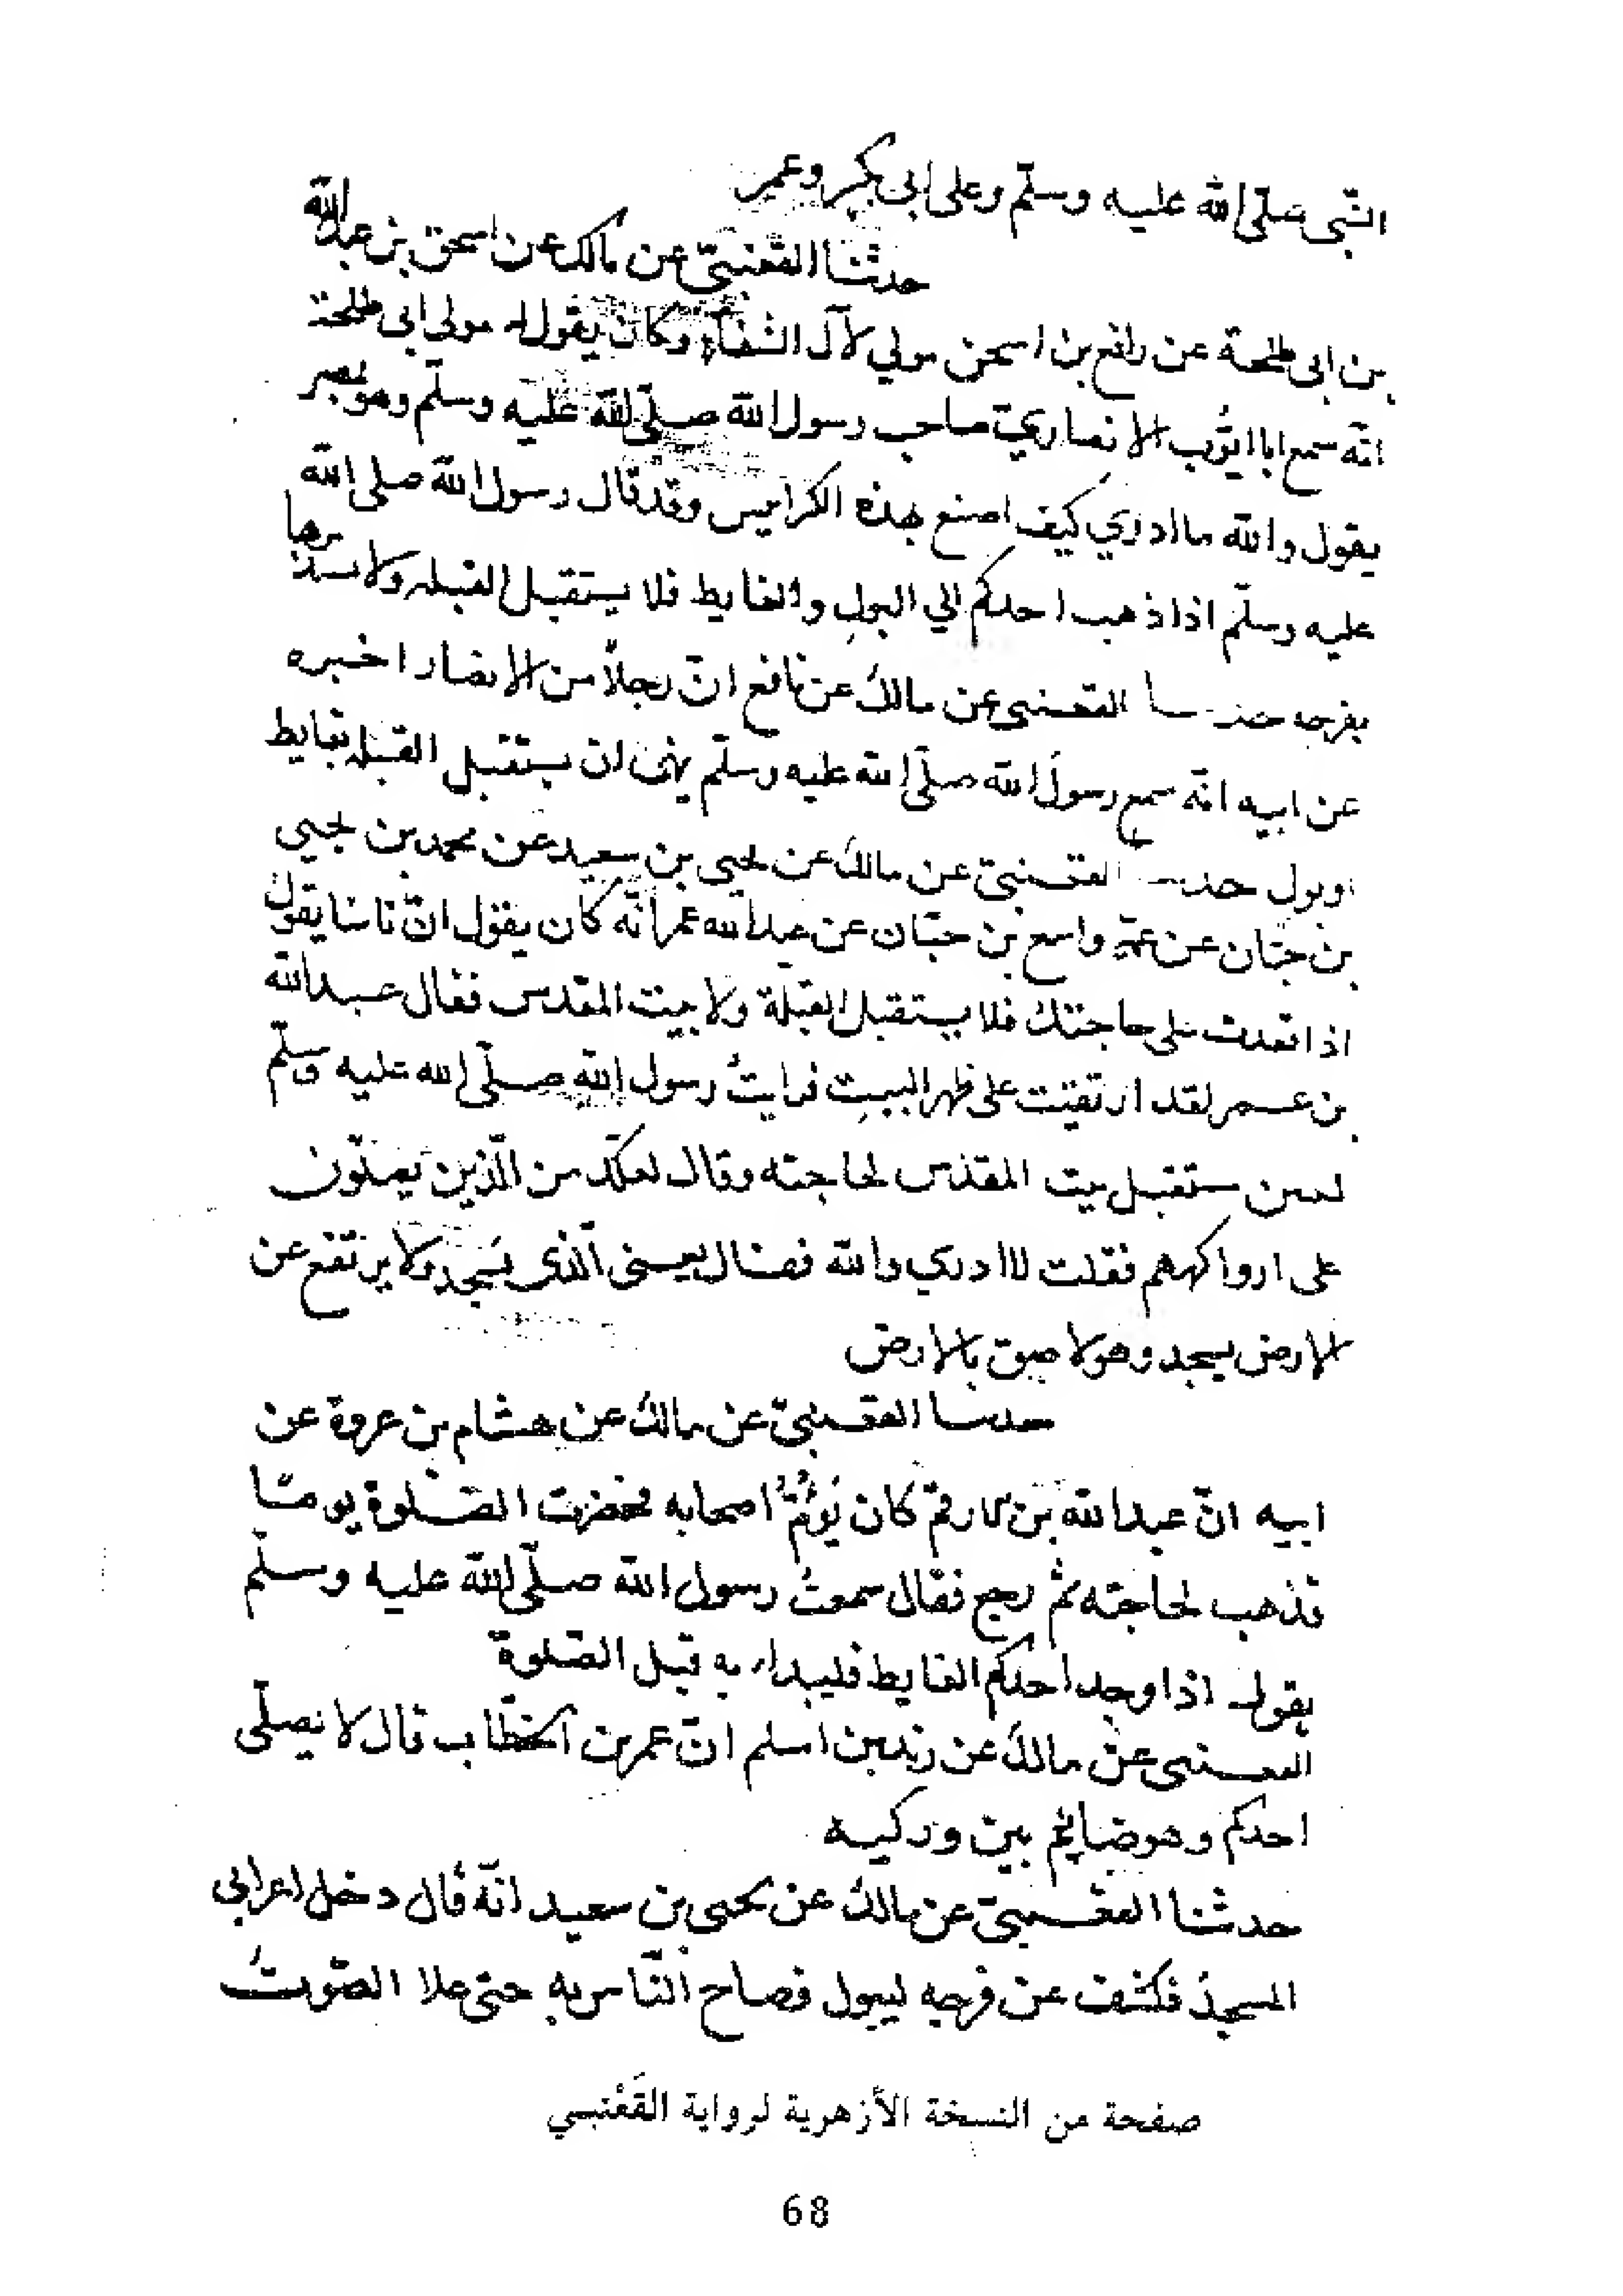 النّبى صلّى الله عليه وسلّم وعلى ابى بكر وعمر
حدثنا القعنبىّ عن مالك عن اسحق بن عبد الله
بن ابى طلحة عن رافع بن اسحق مولي لآل الشفاء وكان يقول له مولى ابى طلحة
انّه سمع ابا ايّوب الانصاريّ صاحب رسول الله صلّى الله عليه وسلّم وهو بمصر
يقول والله ما ادري كيف اصنع بهذه الكراييس وقد قال رسول الله صلى الله
عليه وسلّم اذا ذهب احدكم الي البول والغايط فلا يستقبل القبله ولا يستدبرها
بفرجه حدسا القعنبى عن مالك عن نافع انّ رجلاً من الانصار اخبره
عن ابيه انّه سمع رسول الله صلّى الله عليه وسلّم نهى ان يستقبل القبله بغايط
اوبول حدسا القعنبىّ عن مالك عن يحيى بن سعيد عن محمد بن يحيى
بن حبّان عن عمّه واسع بن حبّان عن عبد الله عمر انّه كان يقول انّ ناسا يقول
اذا قعدت على حاجتك فلا يستقبل القبلة ولا بيت المقدس فقال عبد الله
بن عمر لقد ارتقيت على ظهر البيت فرايتُ رسول الله صلّى الله عليه وسلّم
لبىىن مستقبل بيت المقدس لحاجته وقال لعلّك من الّذين يصلّون
على اوراكهم فقلت لا ادري والله فقال يعنى الّذى يسجد ولا يرتفع عن
الارض يسجد وهو لاصق بالارض
حدسا القعنبىّ عن مالك عن هشام بن عروة عن
ابيه انّ عبد الله بن الارقم كان يؤمّ اصحابه فحضرت الصّلوة يومًا
فذهب لحاجته ثمّ رجع فقال سمعتُ رسول الله صلّى الله عليه وسلّم
يقول اذا وجد احدكم الغايط فليبداء به قبل الصّلوة
القعنبى عن مالك عن زيد بن اسلم انّ عمر بن الخطّاب قال لا يصلّى
احدكم وهو ضايم بين وركيه
حدثنا القعنبىّ عن مالك عن يحيى بن سعيد انّه قال دخل اعرابى
المسجد فكشف عن فرجه ليبول فصاح النّاس به حتى علا الصّوتُ
صفحة من النسخة الأزهرية لرواية القَعْنبي
68